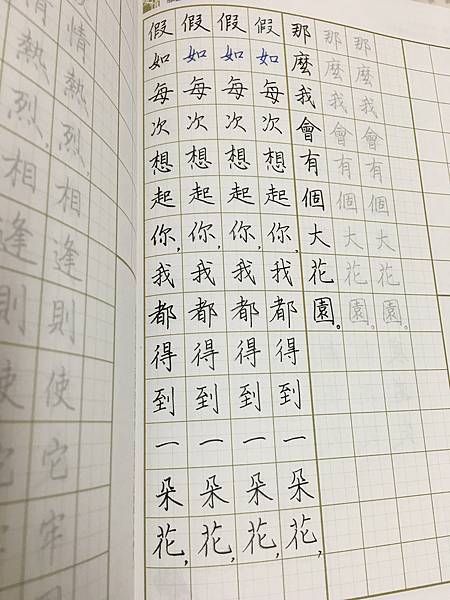 情熱烈相逢則使它
情熱烈,相逢則使它牢
假如每次想起你,我都得到一朵花,
假如每次想起你,我都得到一朵花,
假如每次想起你,我都得到一朵花,
假如每次想起你,我都得到一朵花,
那麼我會有個大花園。
那麼我會有個大花園。
那麼我會有個大花園。